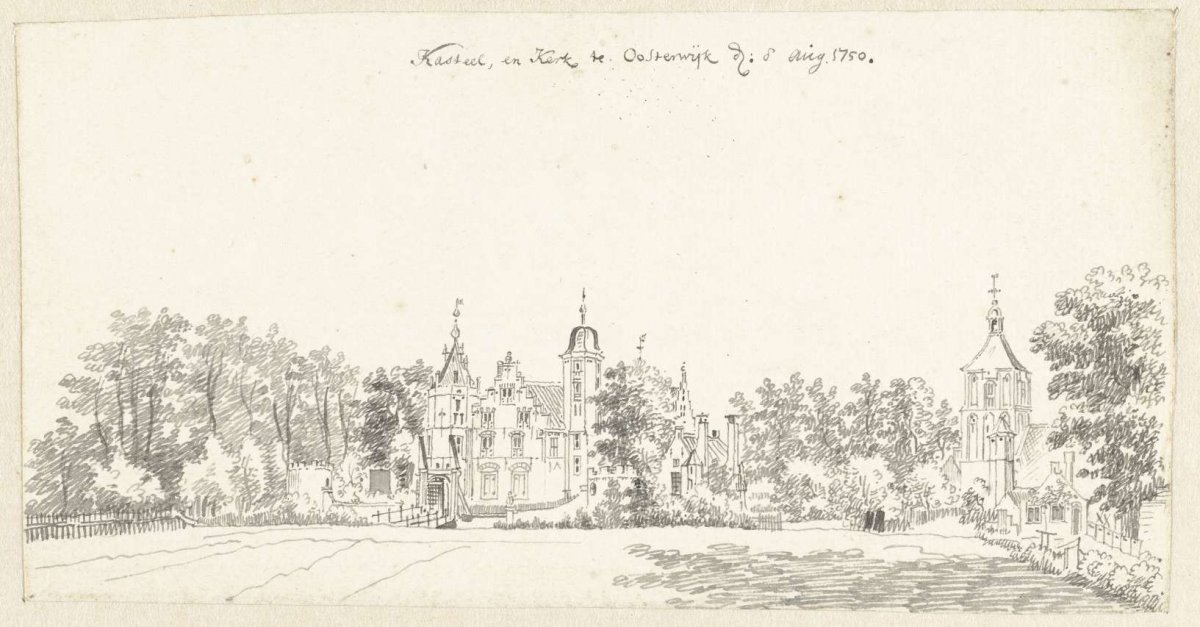 Kasteel, en Kerk te Oosterwijk d: 8 Aug. 1750.